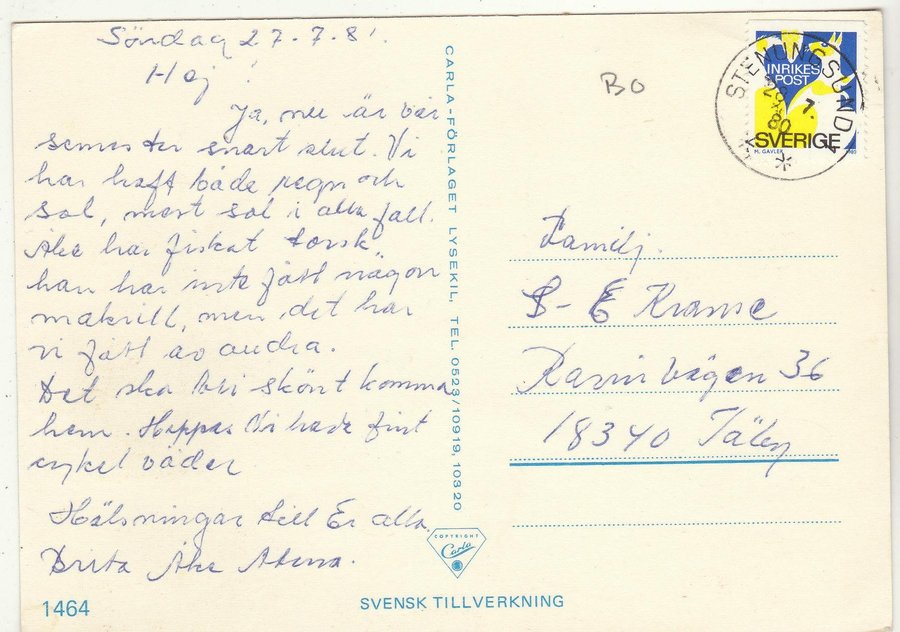 Söndag 27.7.81.
Hej !
Ja, nu är vår
semester snart slut. Vi
har haft både regn och
sol, mest sol i alla fall.
Åke har fiskat torsk
han har inte fått någon
makrill, men det har
vi fått av andra.
Det ska bli skönt komma
hem. Hoppas Ni hade fint
cykel väder
Hälsningar till Er alla.
Brita Åke
1464
CARLA-FÖRLAGET LYSEKIL, TEL. 0523/10919, 103 20
COPYRIGHT
Carla
SVENSK TILLVERKNING
BO
STENUNGSUND
28
7.
80
INRIKES
POST
SVERIGE
M. GAVLER
1980
Familj.
S-E Kranse
Ravinvägen 36
18340 Täby